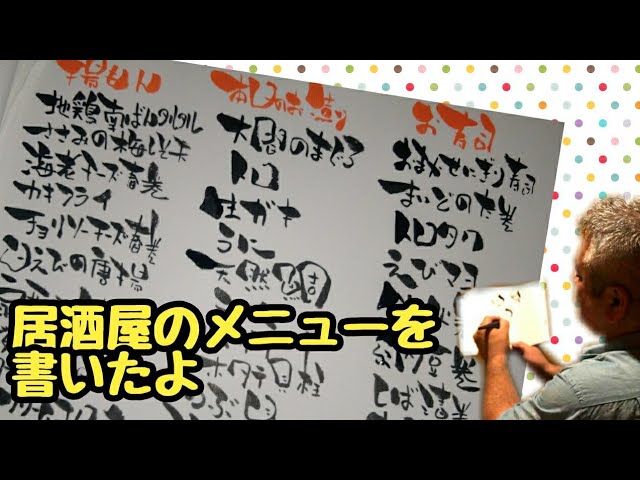 揚もん
地鶏南ばんタルタル
ささみの梅しそ天
海老チーズ春巻
カキフライ
チョリソーチーズ春巻
白えびの唐揚
本日のお造り
大間のまぐろ
トロ
生ガキ
うに
天然鯛
ホタテ貝柱
つぶ貝
お寿司
おまかせにぎり寿司
まいどの太巻
トロタク
えびマヨ
しば漬巻
居酒屋のメニューを
書いたよ